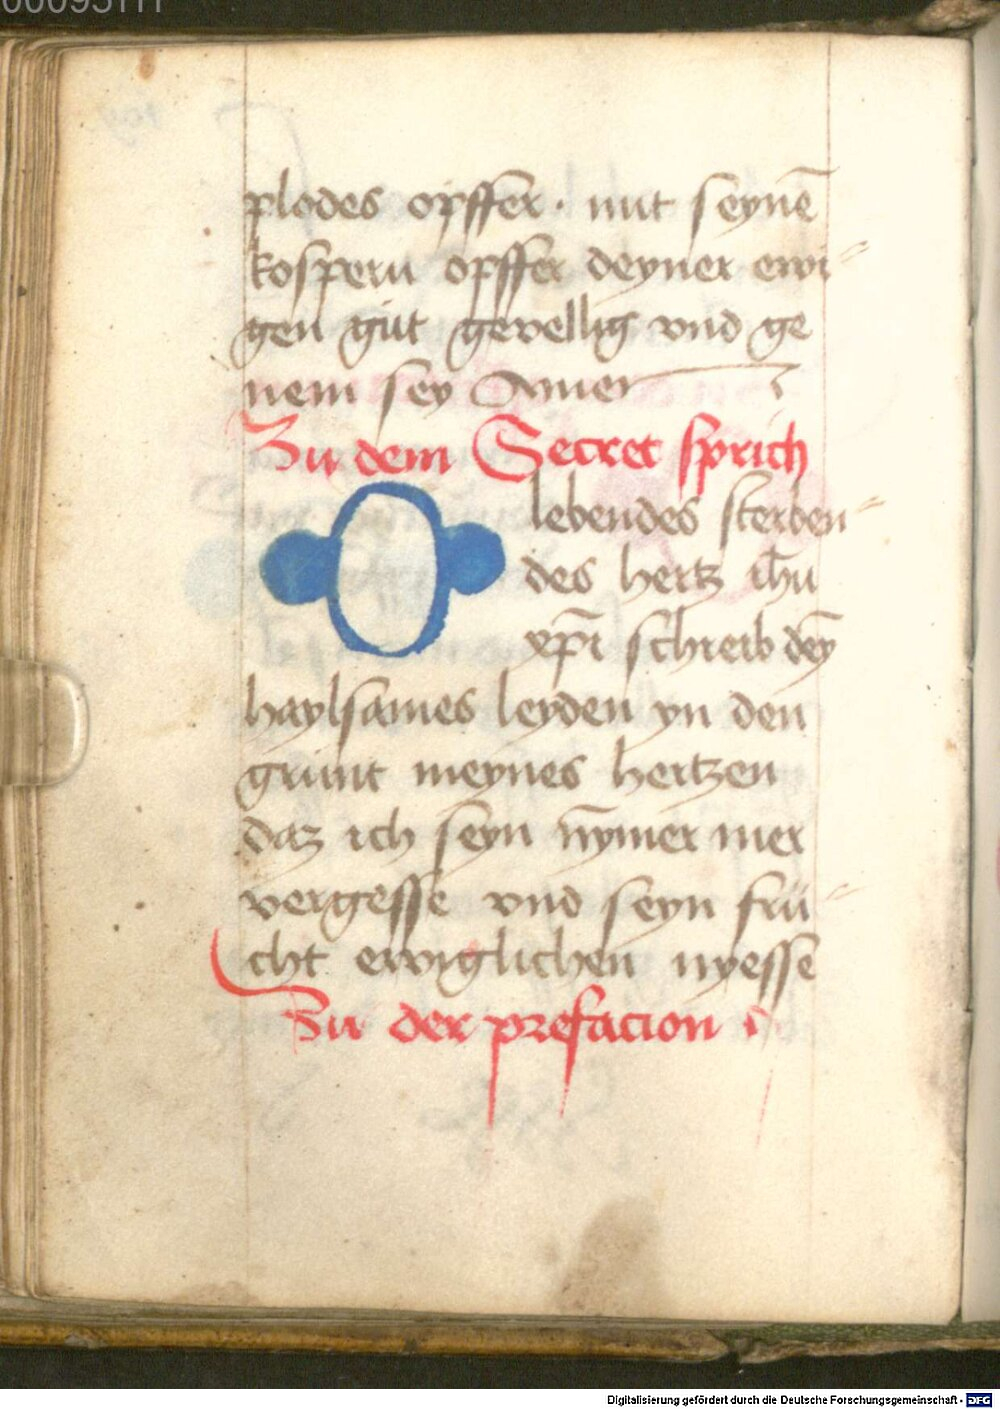 plodes opffer · mit seynē
kospern opffer deyner ewi-
gen güt gevellig vnd ge
nem sey Amen
Zu dem Secret sprich
O lebendes sterben-
des hertz ih̄u
xp̄i schreib dey̅
haylsames leyden yn den
grunt meynes hertzen
daz ich seyn ny̅mer mer
vergesse vnd seyn frü-
cht ewiglichen nyesse
Zu der prefacion
Digitalisierung gefördert durch die Deutsche Forschungsgemeinschaft - DFG